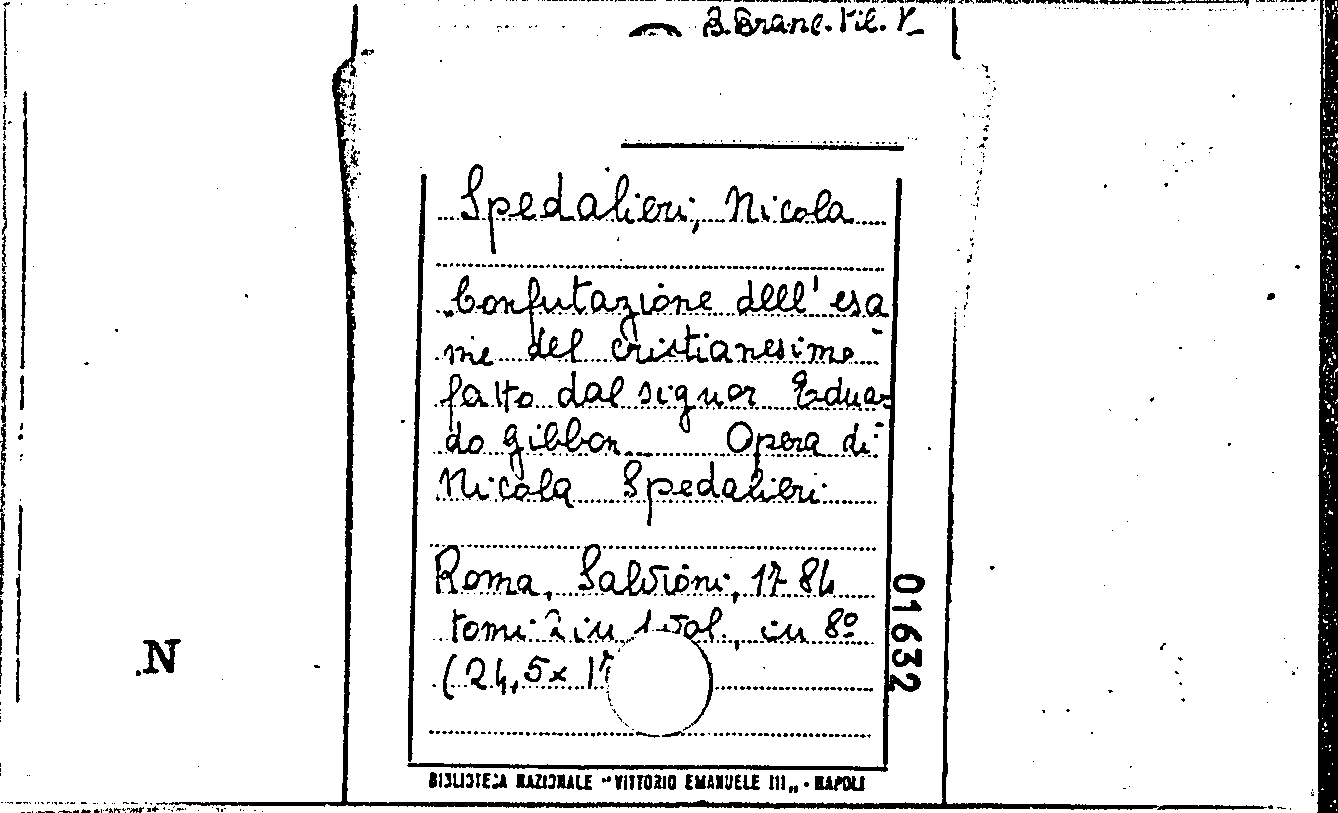 B. Branc. Fil. V
Spedalieri, Nicola
Confutazione dell' esa
me del cristianesimo
fatto dal signor Edua-
do Gibbon Opera di
Nicola Spedalieri
Roma, Salvioni, 1784
tomi 2 in 1 vol., in 8º
(24,5 x 17
01632
N.
BIBLIOTECA NAZIONALE "VITTORIO EMANUELE III„ - NAPOLI